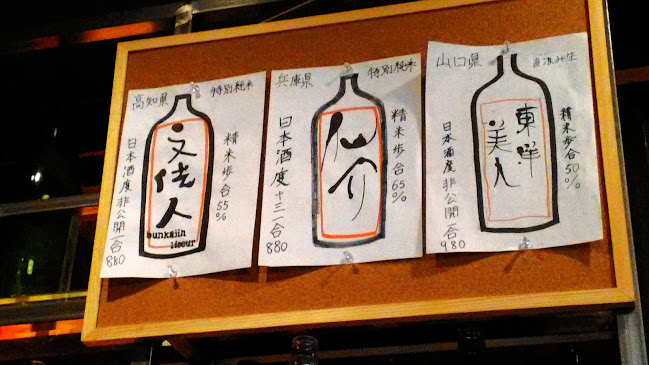 高知県
特別純米
文佳人
bunkajin
liseur
精米歩合55%
日本酒度非公開一合880
兵庫県
特別純米
仙介
精米歩合65%
日本酒度+3一合880
山口県
直汲み生
東洋
美人
精米歩合50%
日本酒度非公開一合980